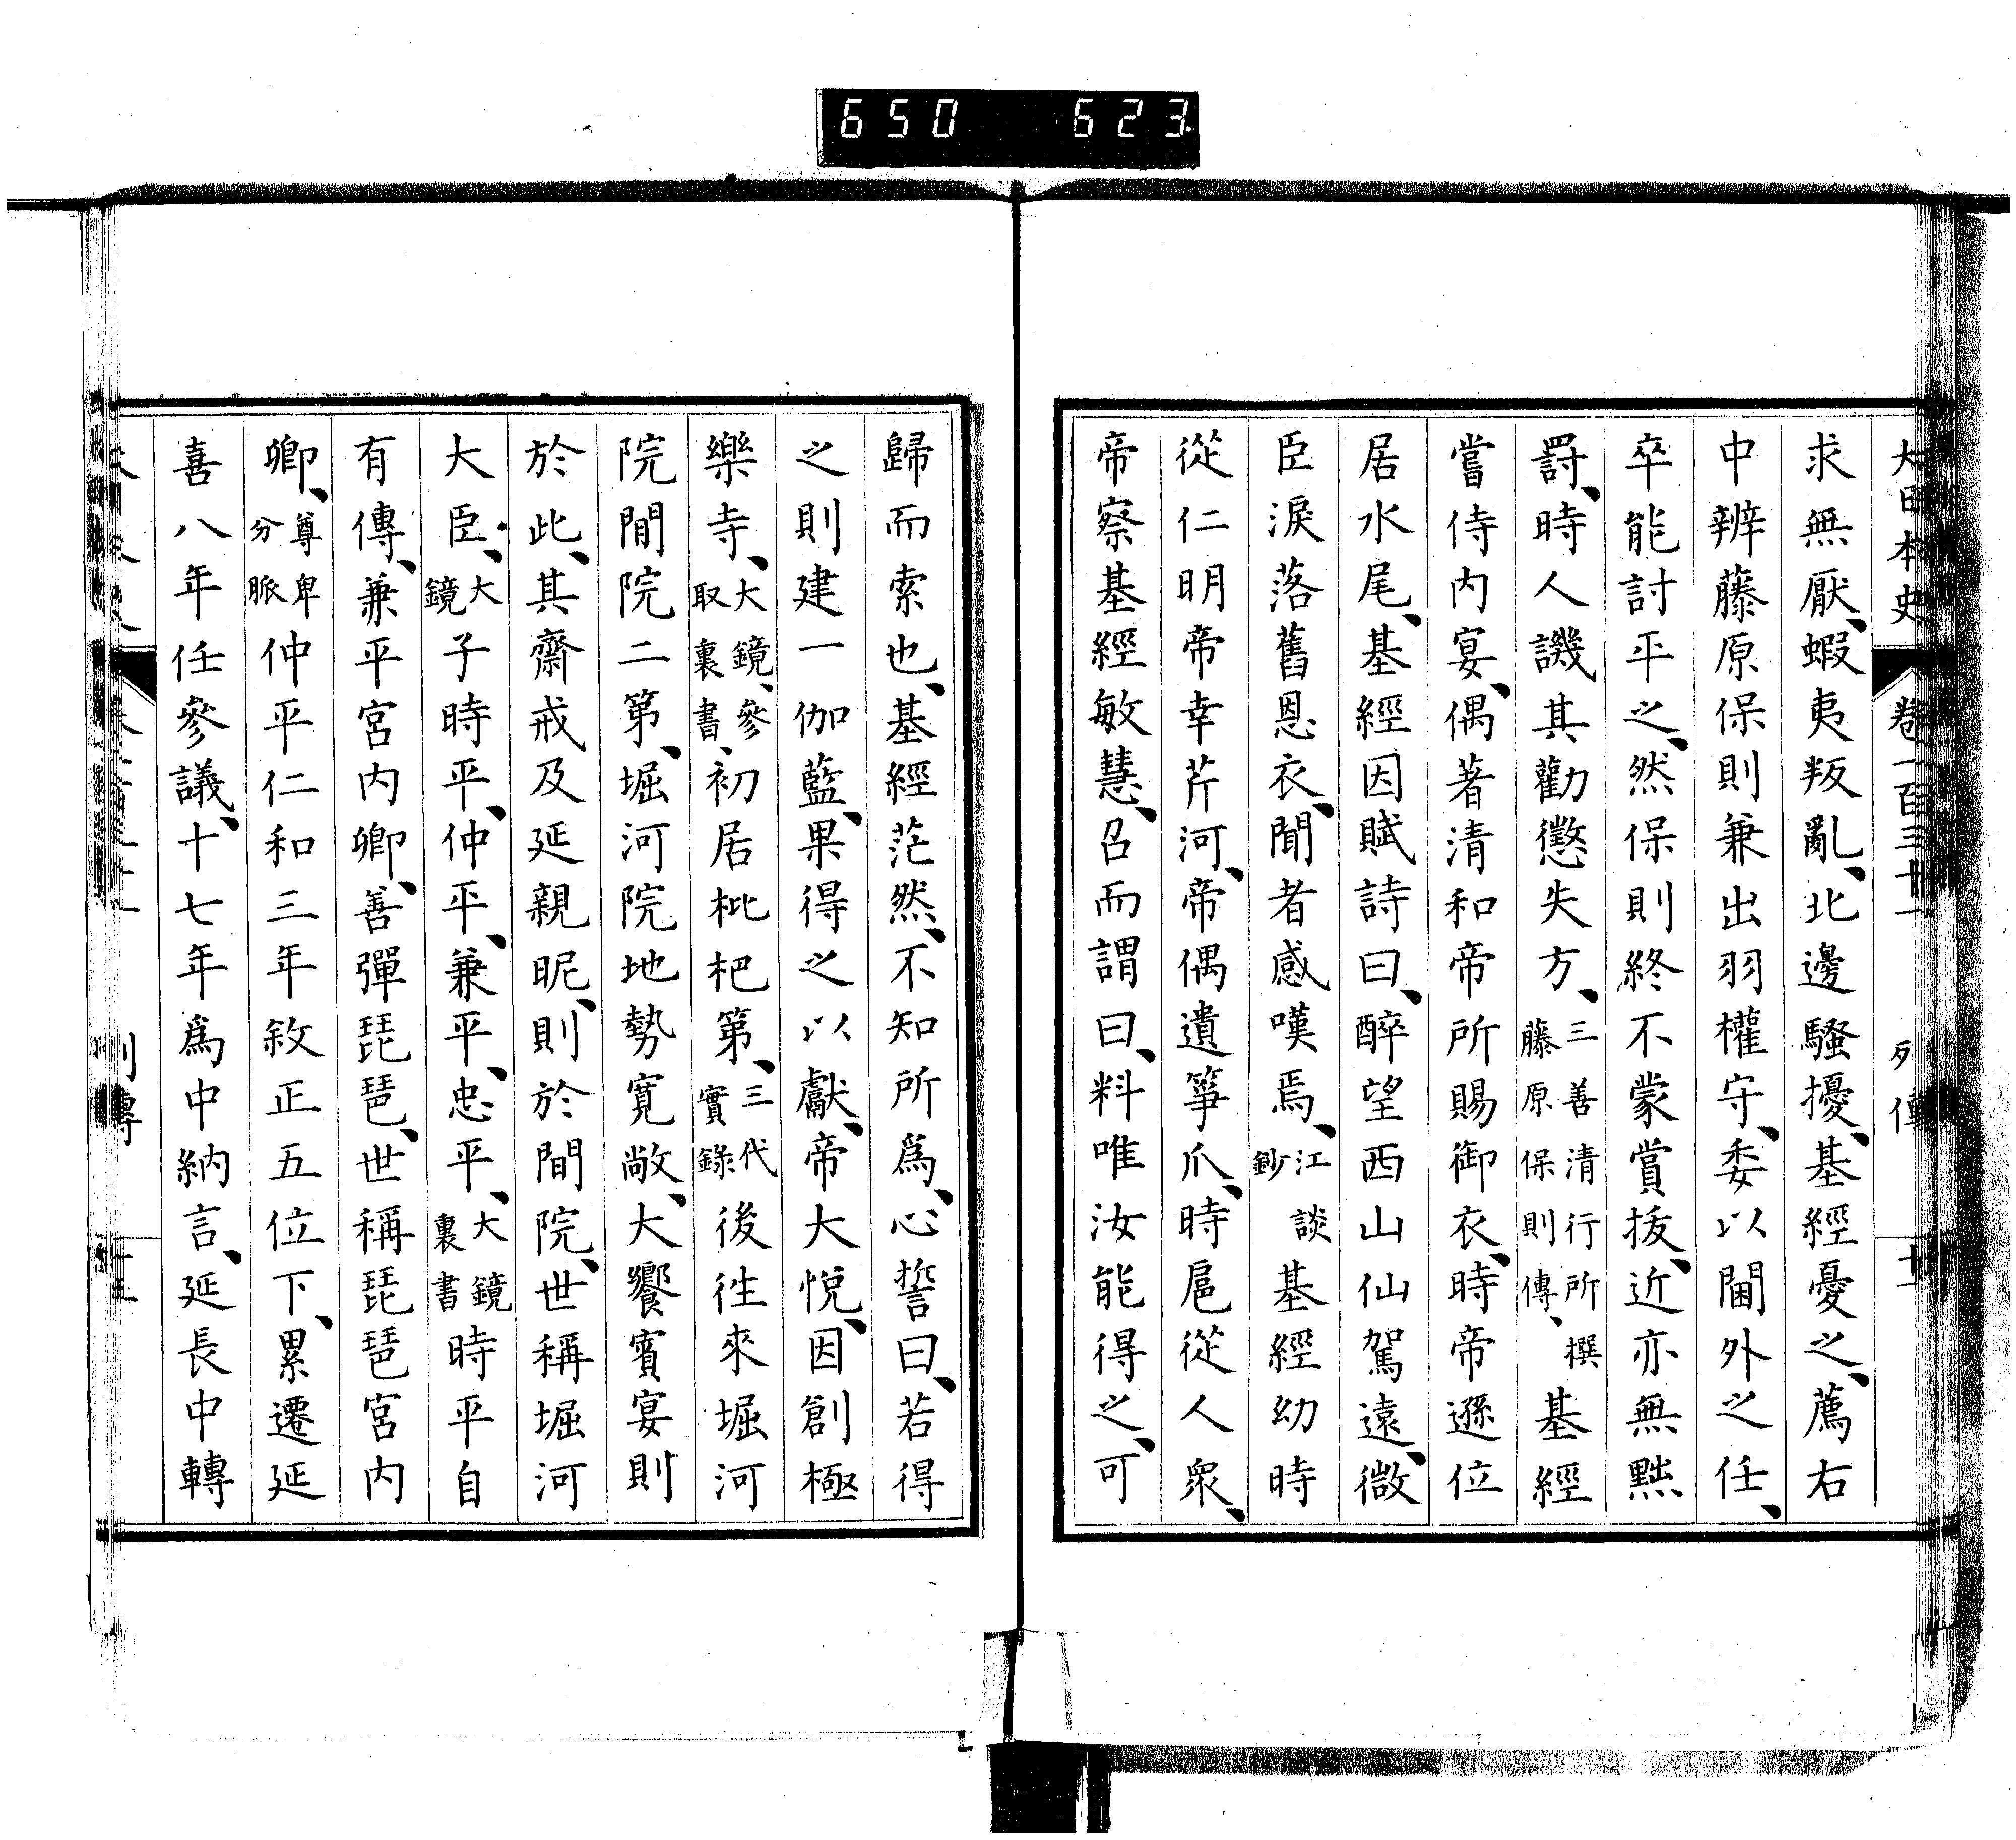 650 623
大日本史 卷一百三十一 列傳 十一
求無厭、蝦夷叛亂、北邊騷擾、基經憂之、薦右
中辨藤原保則兼出羽權守、委以閫外之任、
卒能討平之、然保則終不蒙賞拔、近亦無黜
罰、時人譏其勸懲失方、三善清行所撰藤原保則傳、基經
嘗侍内宴、偶著清和帝所賜御衣、時帝遜位
居水尾、基經因賦詩曰、醉望西山仙駕遠、微
臣淚落舊恩衣、聞者感嘆焉、江談鈔基經幼時
從仁明帝幸芹河、帝偶遺箏爪、時扈從人衆、
帝察基經敏慧、召而謂曰、料唯汝能得之、可
歸而索也、基經茫然、不知所爲、心誓曰、若得
之則建一伽藍、果得之以獻、帝大悅、因創極
樂寺、大鏡、參取裏書、初居枇杷第、三代實錄後徃來堀河
院閒院二第、堀河院地勢寛敞、大饗賓宴則
於此、其齋戒及延親昵、則於閒院、世稱堀河
大臣、大鏡子時平、仲平、兼平、忠平、大鏡裏書時平自
有傳、兼平宮内卿、善彈琵琶、世稱琵琶宮内
卿、尊卑分脈仲平仁和三年敘正五位下、累遷延
喜八年任參議、十七年爲中納言、延長中轉
列傳